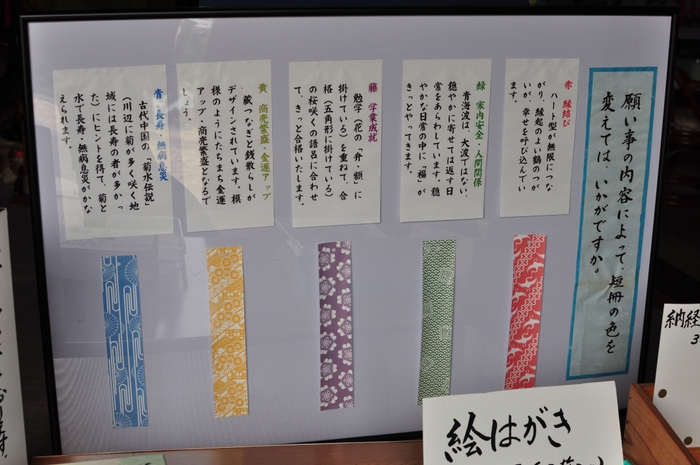 願い事の内容によって、短冊の色を
変えては、いかがですか。
赤 縁結び
ハート型が無限につな
がり、縁起のよい鶴のつが
いが、幸せを呼び込んでい
ます。
緑 家内安全・人間関係
青海波は、大波ではない、
穏やかに寄せては返す日
常をあらわしています。穏
やかな日常の中に「福」が
きっとやってきます。
藤 学業成就
勉学(花の「弁・額」に
掛けている)を重ねて、合
格(五角形に掛けている)
の桜咲くの語呂に合わせ
て、きっと合格いたします。
黄 商売繁盛・金運アップ
蔵つなぎと銭散らしが
デザインされています。模
様のようにたちまち金運
アップ・商売繁盛となるで
しょう。
青 長寿・無病息災
古代中国の「菊水伝説」
(川辺に菊が多く咲く地
域には長寿の者が多かっ
た)にヒントを得て、菊と
水で長寿・無病息災がかな
えられます。
絵はがき
納経